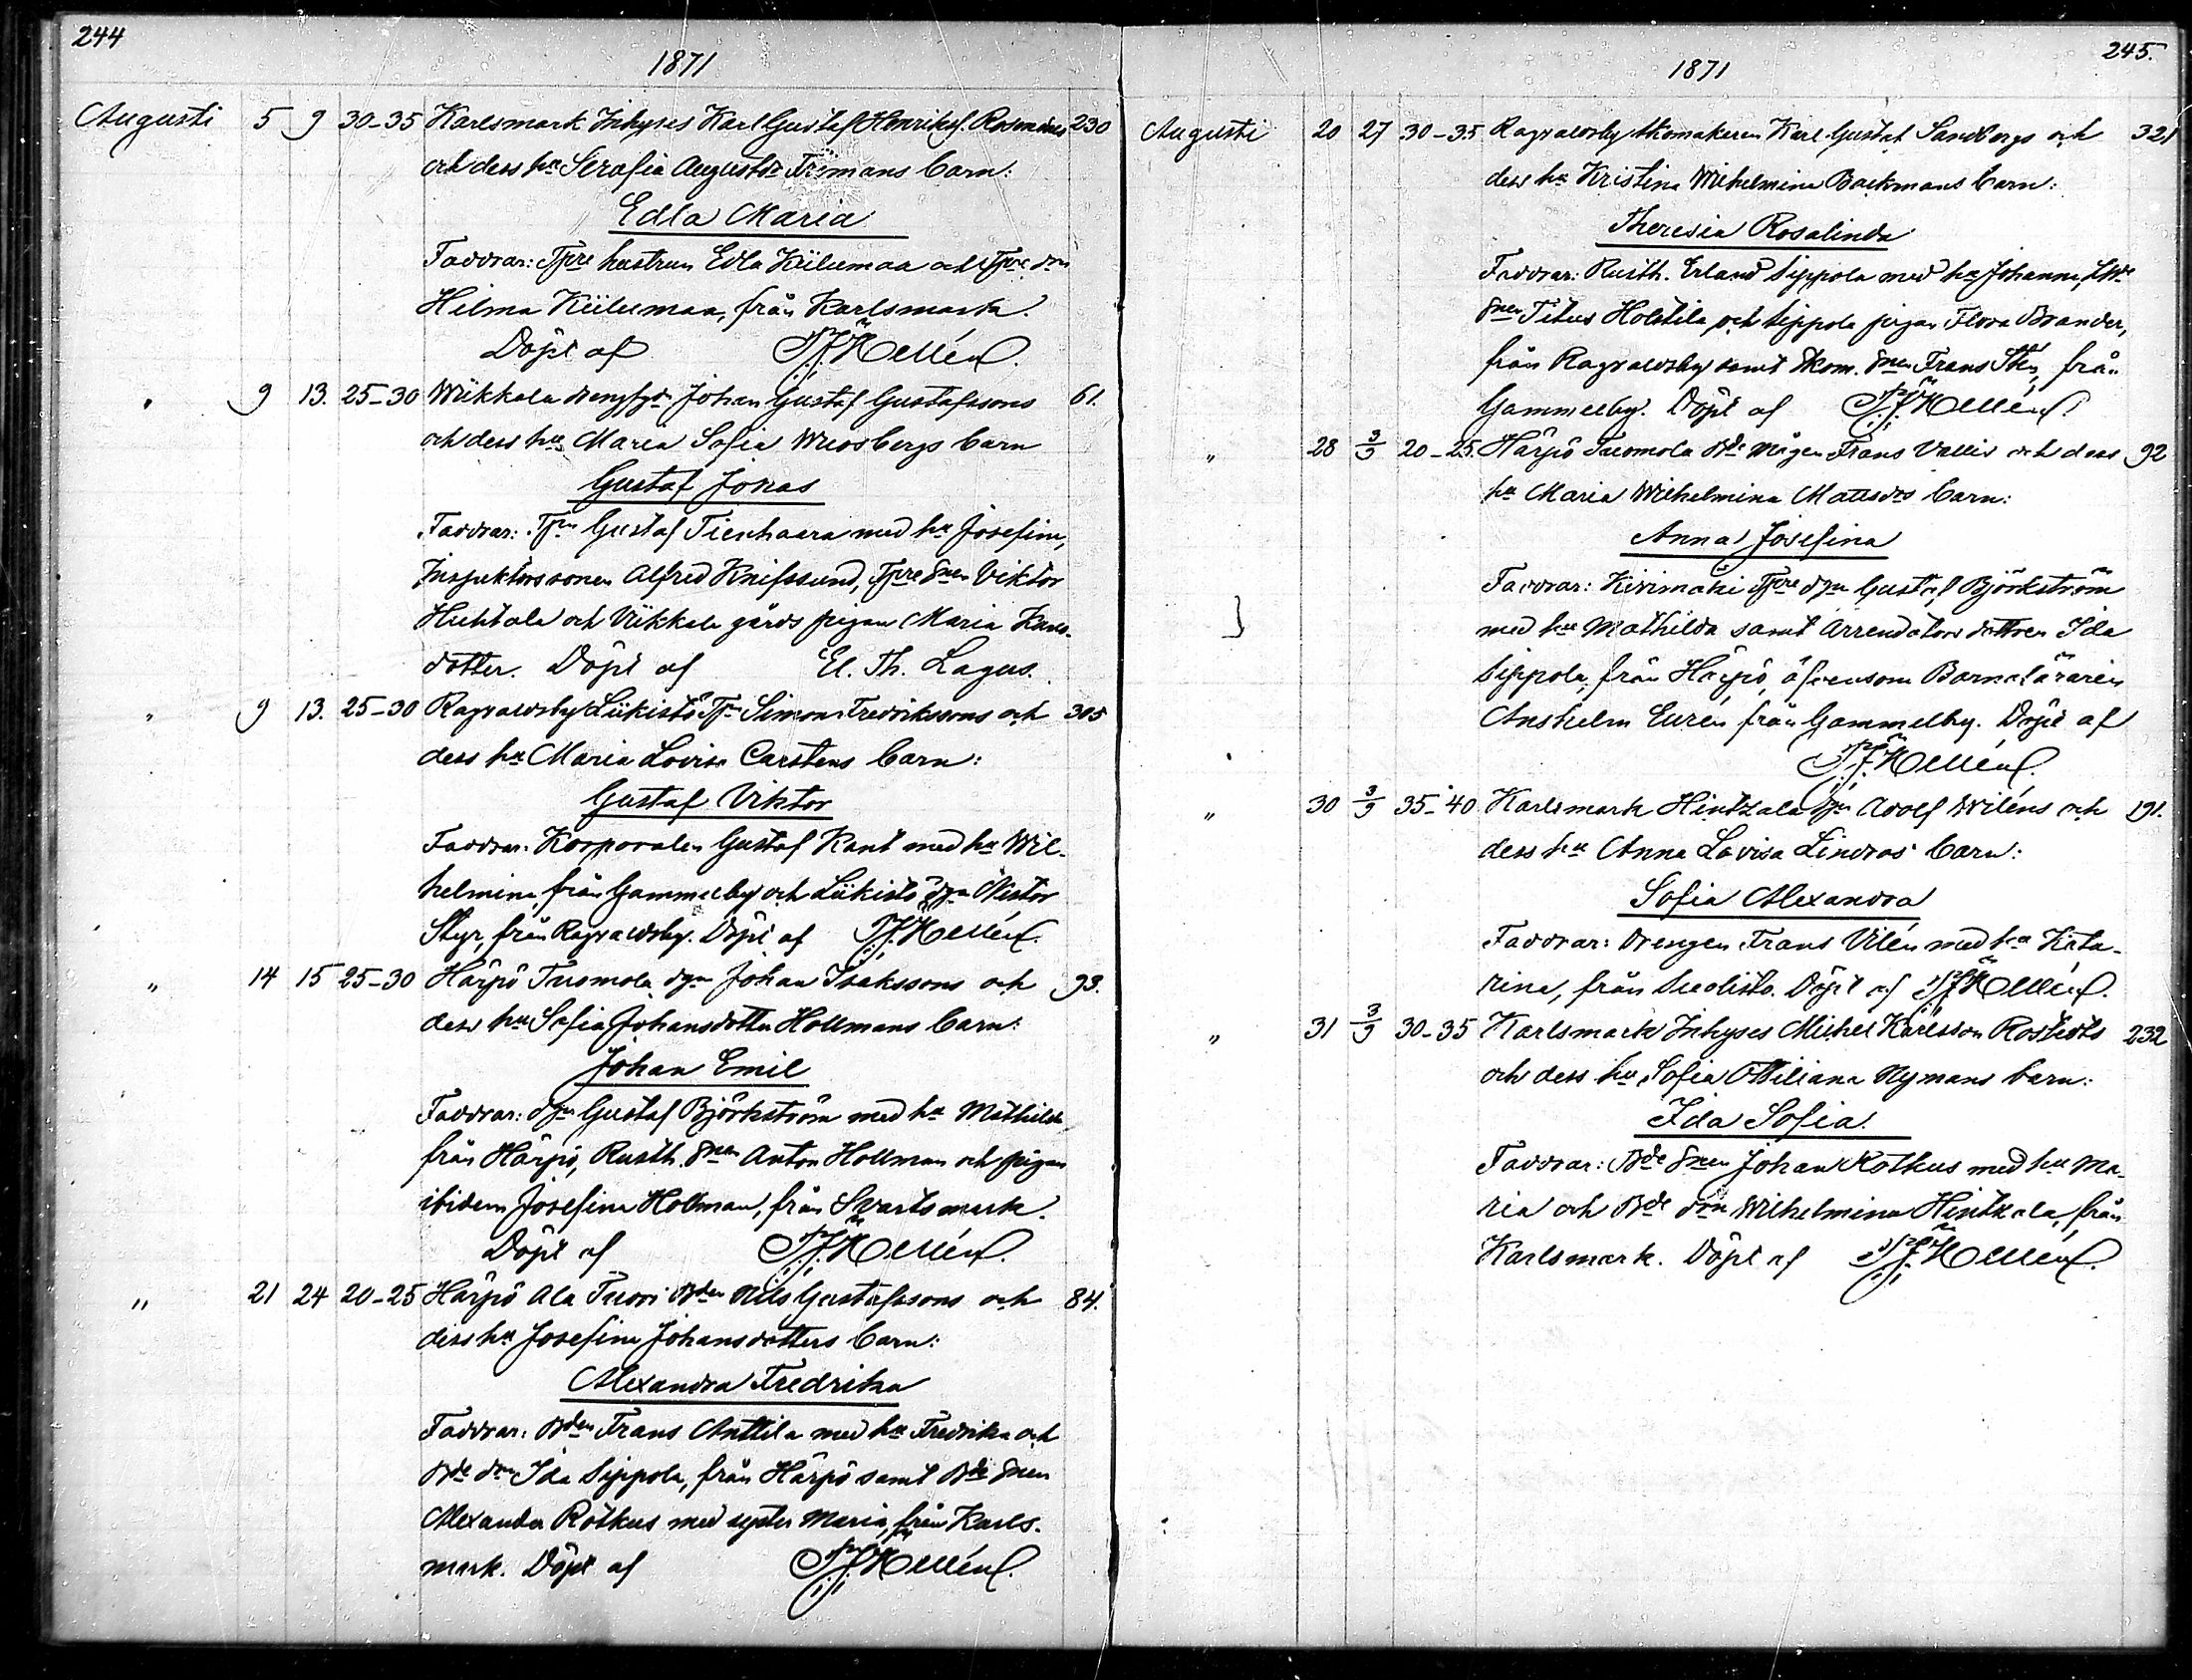 244
1871
Augusti 5 9 30-35 Karlsmark Inhyses Karl Gustaf Henriks. Rosendals 230
och dess hu Serafia Augustdr Frimans barn:
Edla Maria
Faddrar: Tpre hustrun Edla Kiilumaa och Tpre drn
Hilma Kiilumaa, från Karlsmark.
Döpt af Hellén.
" 9 13. 25-30 Wiikkala Johan Gustaf Gustafssons 61.
och dess hu Maria Sofia barn
Gustaf Jonas
Faddrar: Tpn Gustaf Tienhaara med hu Josefina,
Inspektorssonen Alfred Knifssund, Tpre snen Viktor
Huhtala och Viikkala gårds pigan Maria Karls-
dotter. Döpt af El. Th. Lagus.
" 9 13. 25-30 Ragvaldsby Liikistö Tpn Simon Fredrikssons och 305
dess hu Maria Lovisa Carstens barn:
Gustaf Viktor
Faddrar: Korporalen Gustaf Kant med hu Wil-
helmina från Gammelby och Liikistö dgn Nestor
Styr, från Ragvaldsby. Döpt af Hellén.
" 14 15 25-30 Härpö Tuomola dgn Johan Isakssons och 93.
dess hu Sofia Johansdotter Hollmans barn:
Johan Emil
Faddrar: dgn Gustaf Björkström med hu Mathilda
från Härpö, Rusth. snen Anton Hollman och pigan
ibidem Josefina Hollman, från Svartsmark.
Döpt af Hellén.
" 21 24 20-25 Härpö Ala Tuori Bden Nils Gustafssons och 84.
dess hu Josefina Johansdotters barn:
Alexandra Fredrika
Faddrar: Bden Frans Anttila med hu Fredrika och
Bde drn Ida Sippola, från Härpö samt Bde snen
Alexander Rötkus med syster Maria, från Karls-
mark. Döpt af Hellén.
245.
1871
Augusti 20 27 30-35 Ragvaldsby skomakaren Karl Gustaf Sandbergs och 321
dess hu Kristina Wilhelmina Backmans barn:
Theresia Rosalinda
Faddrar: Rusth. Erland Sippola med hu Johanna,
snen Titus Holstila och Sippola pigan Flora Brander,
från Ragvaldsby samt skom. snen Frans från
Gammelby. Döpt af Hellén.
" 28 3/9 20-25. Härpö Tuomola Bde mågen Frans Vallis och dess 92
hu Maria Wilhelmina Mattsdrs barn:
Anna Josefina
Faddrar: Kivimäki Tpre dgn Gustaf Björkström
med hu Mathilda samt Arrendators dottren Ida
Sippola, från Härpö, äfvensom Barnaläraren
Anshelm Eurén från Gammelby. Döpt af
Hellén.
" 30 3/9 35-40 Karlsmark Hintzala Adolf Wiléns och 191.
dess hu Anna Lovisa Lindros barn:
Sofia Alexandra
Faddrar: Drengen Frans Vilén med hu Kata-
rina, från Suolisto. Döpt af Hellén.
" 31 3/9 30-35 Karlsmark Inhyses Michel Karlsson Rostedts 232
och dess hu Sofia Ottiliana Nymans barn:
Ida Sofia.
Faddrar: Bde snen Johan Rötkus med hu Ma-
ria och Bde drn Wilhelmina Hintzala, från
Karlsmark. Döpt af Hellén.